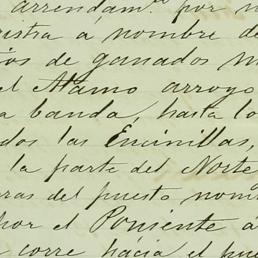 arrendam.to por
istra a nombre de
ios de ganados m
el Alamo arroyo
a banda, hasta lo
dos las Encinillas,
la parte del Norte
ras del puesto nom
por el Poniente á
corre hácia el pue